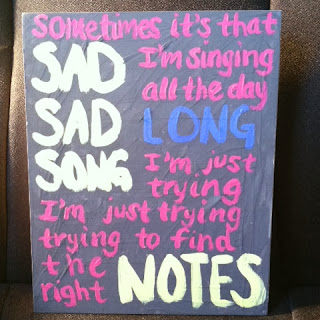 sometimes it's that
SAD I'm singing
all the day
SAD LONG
SONG I'm just
trying
I'm just trying
trying to find
the
right NOTES